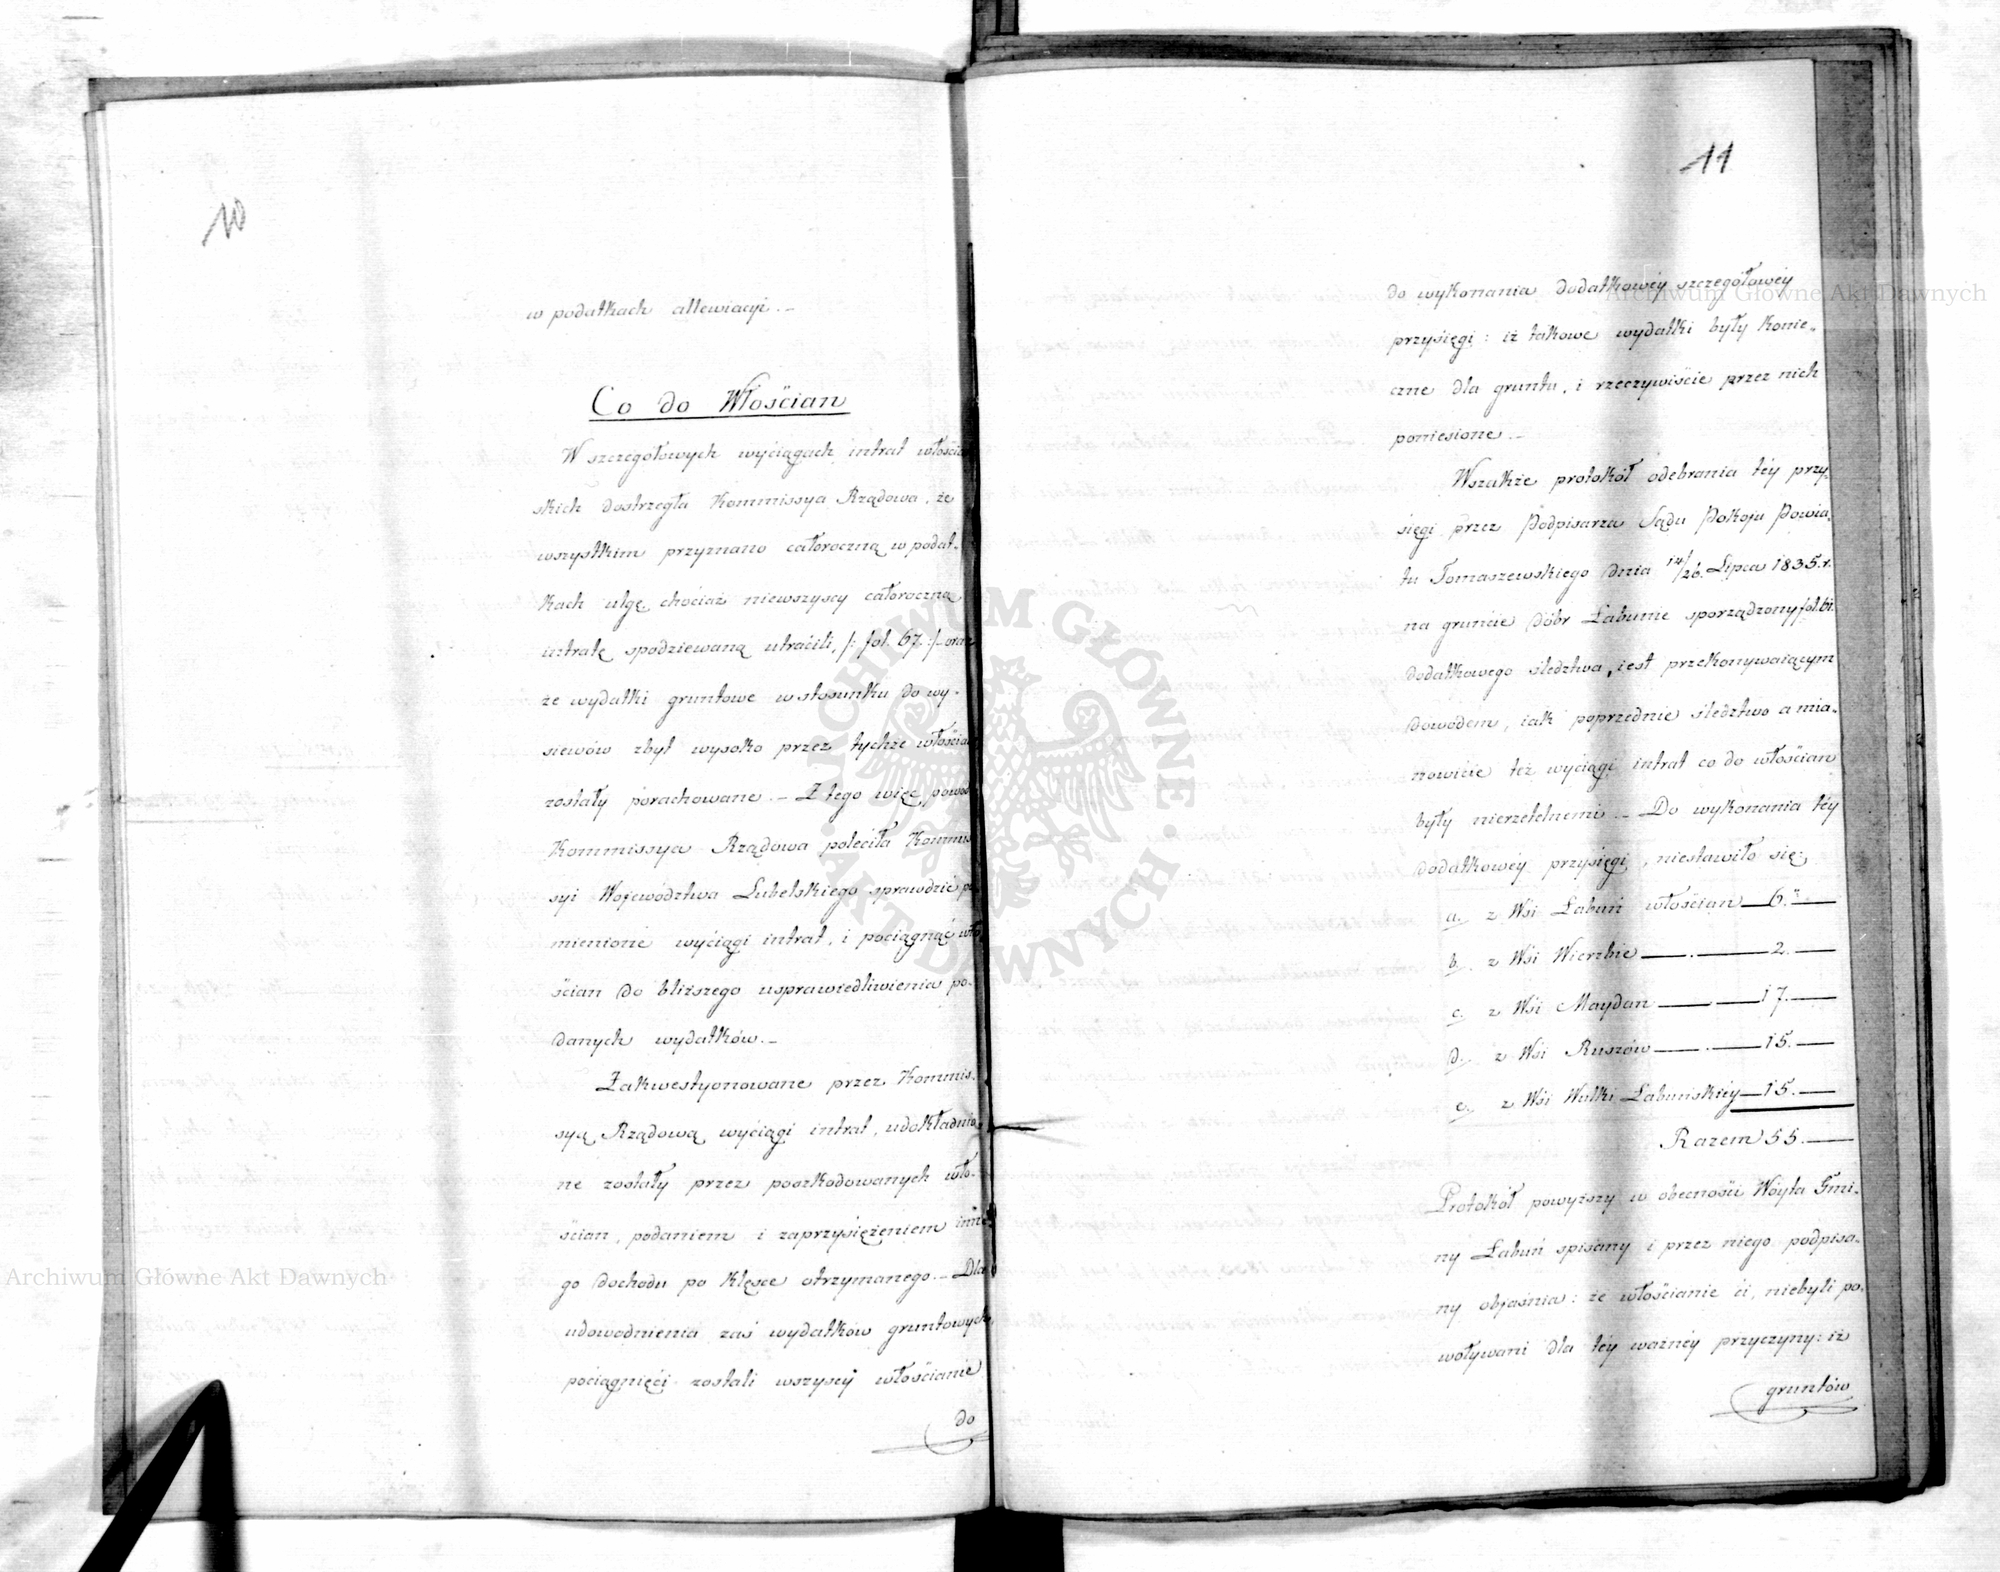 10
w podatkach allewiacyi. –
Co do Włościan
W szczegółowych wyciągach intrat włościań
skich dostrzegła Kommissya Rządowa, że
wszystkim przyznano całoroczną w podat-
kach ulgę chociaż niewszyscy całoroczną
intratę spodziewaną utracili, /: fol. 67. :/ oraz
że wydatki gruntowe w stosunku do wy-
siewów zbyt wysoko przez tychże włościan
zostały porachowane. – Z tego więc powodu
Kommissya Rządowa poleciła Kommis
syi Województwa Lubelskiego sprawdzić po
mienione wyciągi intrat, i pociągnąć wło
ścian do bliższego usprawiedliwienia po-
danych wydatków. –
Zakwestyonowane przez Kommis-
syą Rządową wyciągi intrat, udokładnio
ne zostały przez poszkodowanych wło-
ścian, podaniem i zaprzysiężeniem inne
go dochodu po klęsce otrzymanego. – Dla
udowodnienia zaś wydatków gruntowych
pociągnięci zostali wszyscy włościanie
do
11
do wykonania dodatkowéy szczegółowéy
przysięgi: iż takowe wydatki były konie-
czne dla gruntu, i rzeczywiście przez nich
poniesione. –
Wszakże protokół odebrania téy przy-
sięgi przez Podpisarza Sądu Pokoju Powia-
tu Tomaszewskiego dnia 14/26. Lipca 1835. r.
na gruncie dóbr Łabunie sporządzony fol. 61.
dodatkowego śledztwa, iest przekonywaiącym
dowodem, iak poprzednie śledztwo a mia-
nowicie téż wyciągi intrat co do włościan
były nierzetelnemi. – Do wykonania téy
dodatkowéy przysięgi, niestawiło się:
a. z Wsi Łabuń włościan — 6. —
b. z Wsi Wierzbie — . — 2. —
c. z Wsi Maydan — — 17. —
d. z Wsi Ruszów — . — 15. —
e. z Wsi Wulki Łabuńskiéy — 15. —
Razem 55. —
Protokół powyższy w obecności Wóyta Gmi-
ny Łabuń spisany i przez niego podpisa-
ny objaśnia: że włościanie ci, niebyli po-
woływani dla téy ważnéy przyczyny: iż
gruntów
Archiwum Główne Akt Dawnych
Archiwum Główne Akt Dawnych
ARCHIWUM GŁÓWNE
AKT DAWNYCH